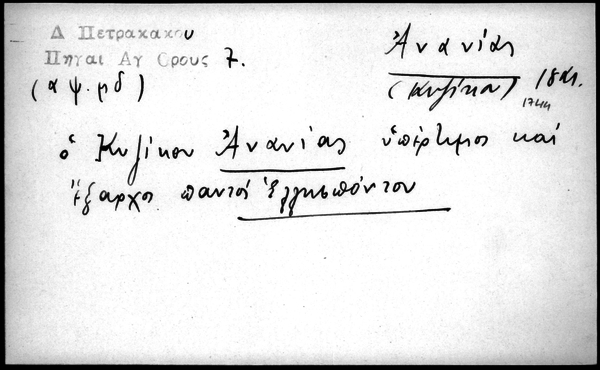 Δ Πετρακακου
Πηγαι Αγ Ορους 7.
(αψ.μδ)
Ἀνανίας
(Κυζίκου) 18 αι.
1744
ὁ Κυζίκου Ἀνανίας ὑπέρτιμος καὶ
ἔξαρχος παντὸς Ἑλλησπόντου